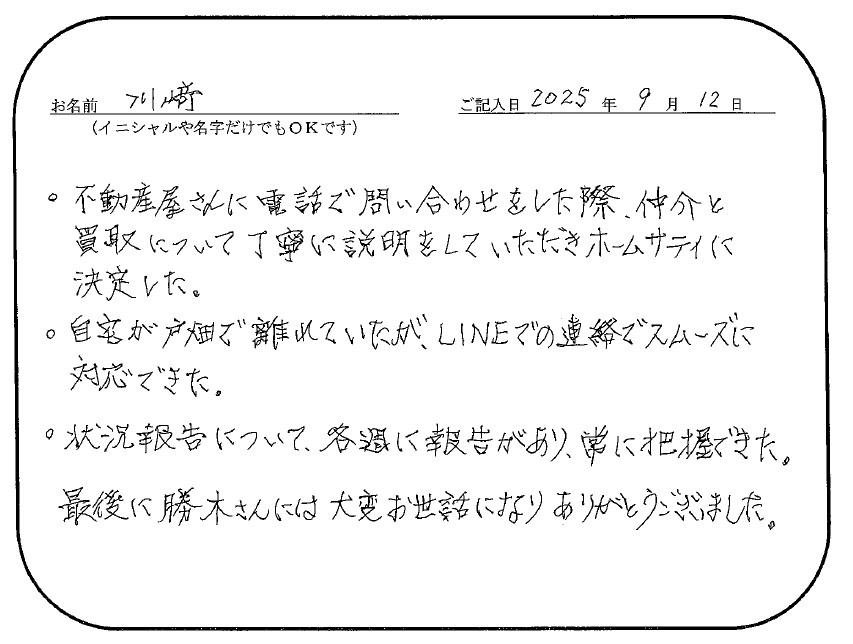 お名前 川﨑 ご記入日 2025 年 9 月 12 日
(イニシャルや名字だけでもOKです)
○ 不動産屋さんに電話で問い合わせをした際、仲介と
買取について丁寧に説明をしていただきホームサティに
決定した。
○ 自宅が戸畑で離れていたが、LINEでの連絡でスムーズに
対応できた。
○ 状況報告について、各週に報告があり、常に把握できた。
最後に勝木さんには大変お世話になりありがとうございました。